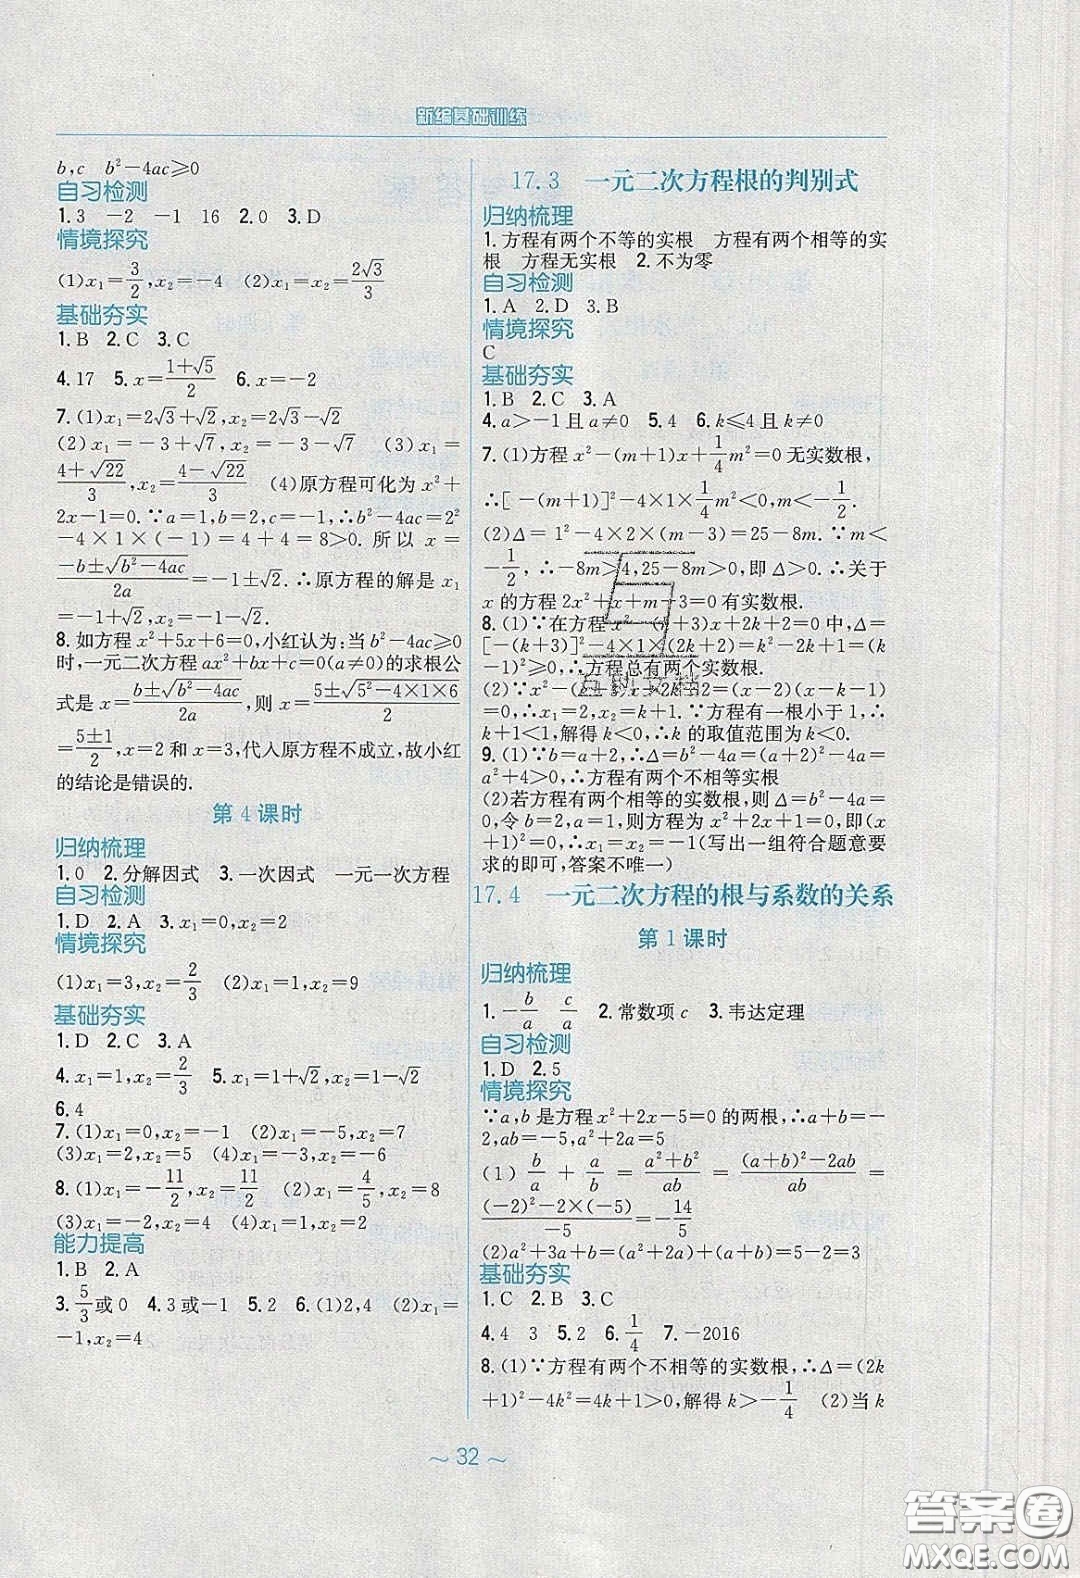 新编基础训练
b,c　b²-4ac≥0
自习检测
1.3　-2　-1　16　2.0　3.D
情境探究
(1)x₁=3/2,x₂=-4　(2)x₁=x₂=2√3/3
基础夯实
1.B　2.C　3.C
4.17　5.x=(1+√5)/2　6.x=-2
7.(1)x₁=2√3+√2,x₂=2√3-√2
(2)x₁=-3+√7,x₂=-3-√7　(3)x₁=
(4+√22)/3,x₂=(4-√22)/3　(4)原方程可化为 x²+
2x-1=0.∵a=1,b=2,c=-1,∴b²-4ac=2²
-4×1×(-1)=4+4=8>0. 所以 x=
(-b±√(b²-4ac))/2a=-1±√2.∴原方程的解是 x₁
=-1+√2,x₂=-1-√2.
8. 如方程 x²+5x+6=0,小红认为:当 b²-4ac≥0
时,一元二次方程 ax²+bx+c=0(a≠0)的求根公
式是 x=(b±√(b²-4ac))/2a,则 x=(5±√(5²-4×1×6))/2
=(5±1)/2,x=2 和 x=3,代入原方程不成立,故小红
的结论是错误的.
第 4 课时
归纳梳理
1.0　2.分解因式　3.一次因式　一元一次方程
自习检测
1.D　2.A　3.x₁=0,x₂=2
情境探究
(1)x₁=3,x₂=2/3　(2)x₁=1,x₂=9
基础夯实
1.D　2.C　3.A
4.x₁=1,x₂=2/3　5.x₁=1+√2,x₂=1-√2
6.4
7.(1)x₁=0,x₂=-1　(2)x₁=-5,x₂=7
(3)x₁=-4,x₂=2　(4)x₁=3,x₂=1
8.(1)x₁=-11/2,x₂=11/2　(2)x₁=4/5,x₂=8
(3)x₁=-2,x₂=4　(4)x₁=1,x₂=0
能力提高
1.B　2.A
3.5/3或0　4.3或-1　5.2　6.(1)2,4　(2)x₁=
-1,x₂=4
17.3　一元二次方程根的判别式
归纳梳理
1.方程有两个不等的实根　方程有两个相等的实
根　方程无实根　2.不为零
自习检测
1.A　2.D　3.B
情境探究
C
基础夯实
1.B　2.C　3.A
4.a>-1且a≠0　5.4　6.k≤4且k≠0
7.(1)方程 x²-(m+1)x+1/4m²=0无实数根,
∴[-(m+1)]²-4×1×1/4m²<0,m<-1/2.
(2)Δ=1²-4×2×(m-3)=25-8m.∵m<
-1/2,∴-8m>4,25-8m>0,即 Δ>0.∴关于
x 的方程 2x²+x+m-3=0 有实数根.
8.(1)∵在方程 x²-(k+3)x+2k+2=0 中,Δ=
[-(k+3)]²-4×1×(2k+2)=k²-2k+1=(k
-1)²≥0,∴方程总有两个实数根.
(2)∵x²-(k+3)x+2k+2=(x-2)(x-k-1)
=0,∴x₁=2,x₂=k+1.∵方程有一根小于1,∴
k+1<1,解得 k<0,∴k 的取值范围为 k<0.
9.(1)∵b=a+2,∴Δ=b²-4a=(a+2)²-4a=
a²+4>0,∴方程有两个不相等实根
(2)若方程有两个相等的实数根,则 Δ=b²-4a=
0,令 b=2,a=1,则方程为 x²+2x+1=0,即(x
+1)²=0,∴x₁=x₂=-1(写出一组符合题意要
求的即可,答案不唯一)
17.4　一元二次方程的根与系数的关系
第 1 课时
归纳梳理
1.-b/a　c/a　2.常数项 c　3.韦达定理
自习检测
1.D　2.5
情境探究
∵a,b 是方程 x²+2x-5=0 的两根,∴a+b=-
2,ab=-5,a²+2a=5
(1) b/a + a/b = (a²+b²)/ab = ((a+b)²-2ab)/ab =
((-2)²-2×(-5))/-5=-14/5
(2)a²+3a+b=(a²+2a)+(a+b)=5-2=3
基础夯实
1.C　2.B　3.C
4.4　3　5.2　6.1/4　7.-2016
8.(1)∵方程有两个不相等的实数根,∴Δ=(2k
+1)²-4k²=4k+1>0,解得 k>-1/4　(2)当 k
～ 32 ～
答案圈
MXQE.COM